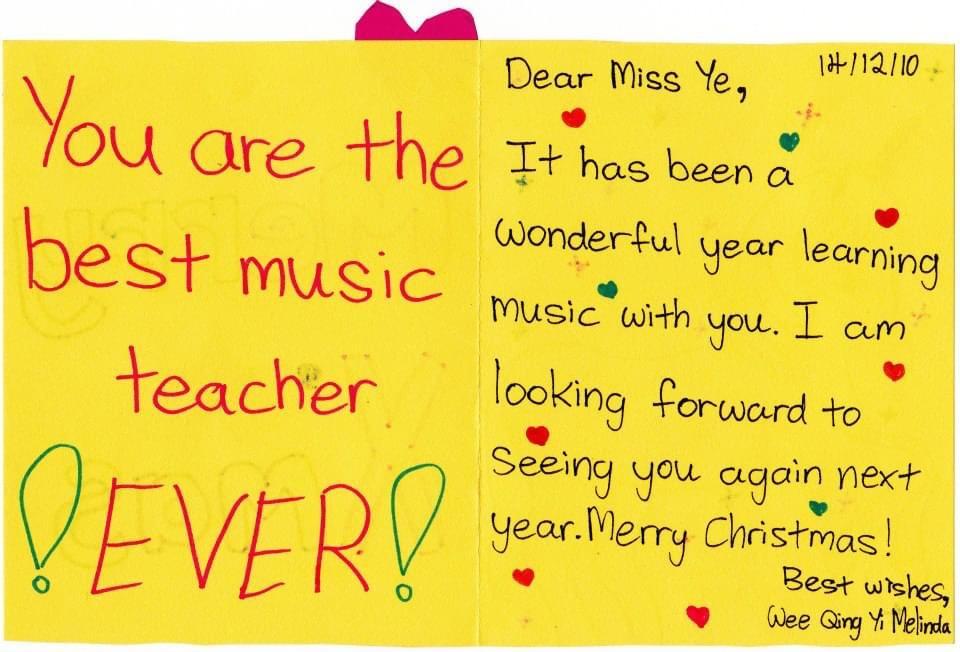 You are the
best music
teacher
!EVER!
14/12/10
Dear Miss Ye,
It has been a
wonderful year learning
music with you. I am
looking forward to
seeing you again next
year. Merry Christmas!
Best wishes,
Wee Qing Yi Melinda